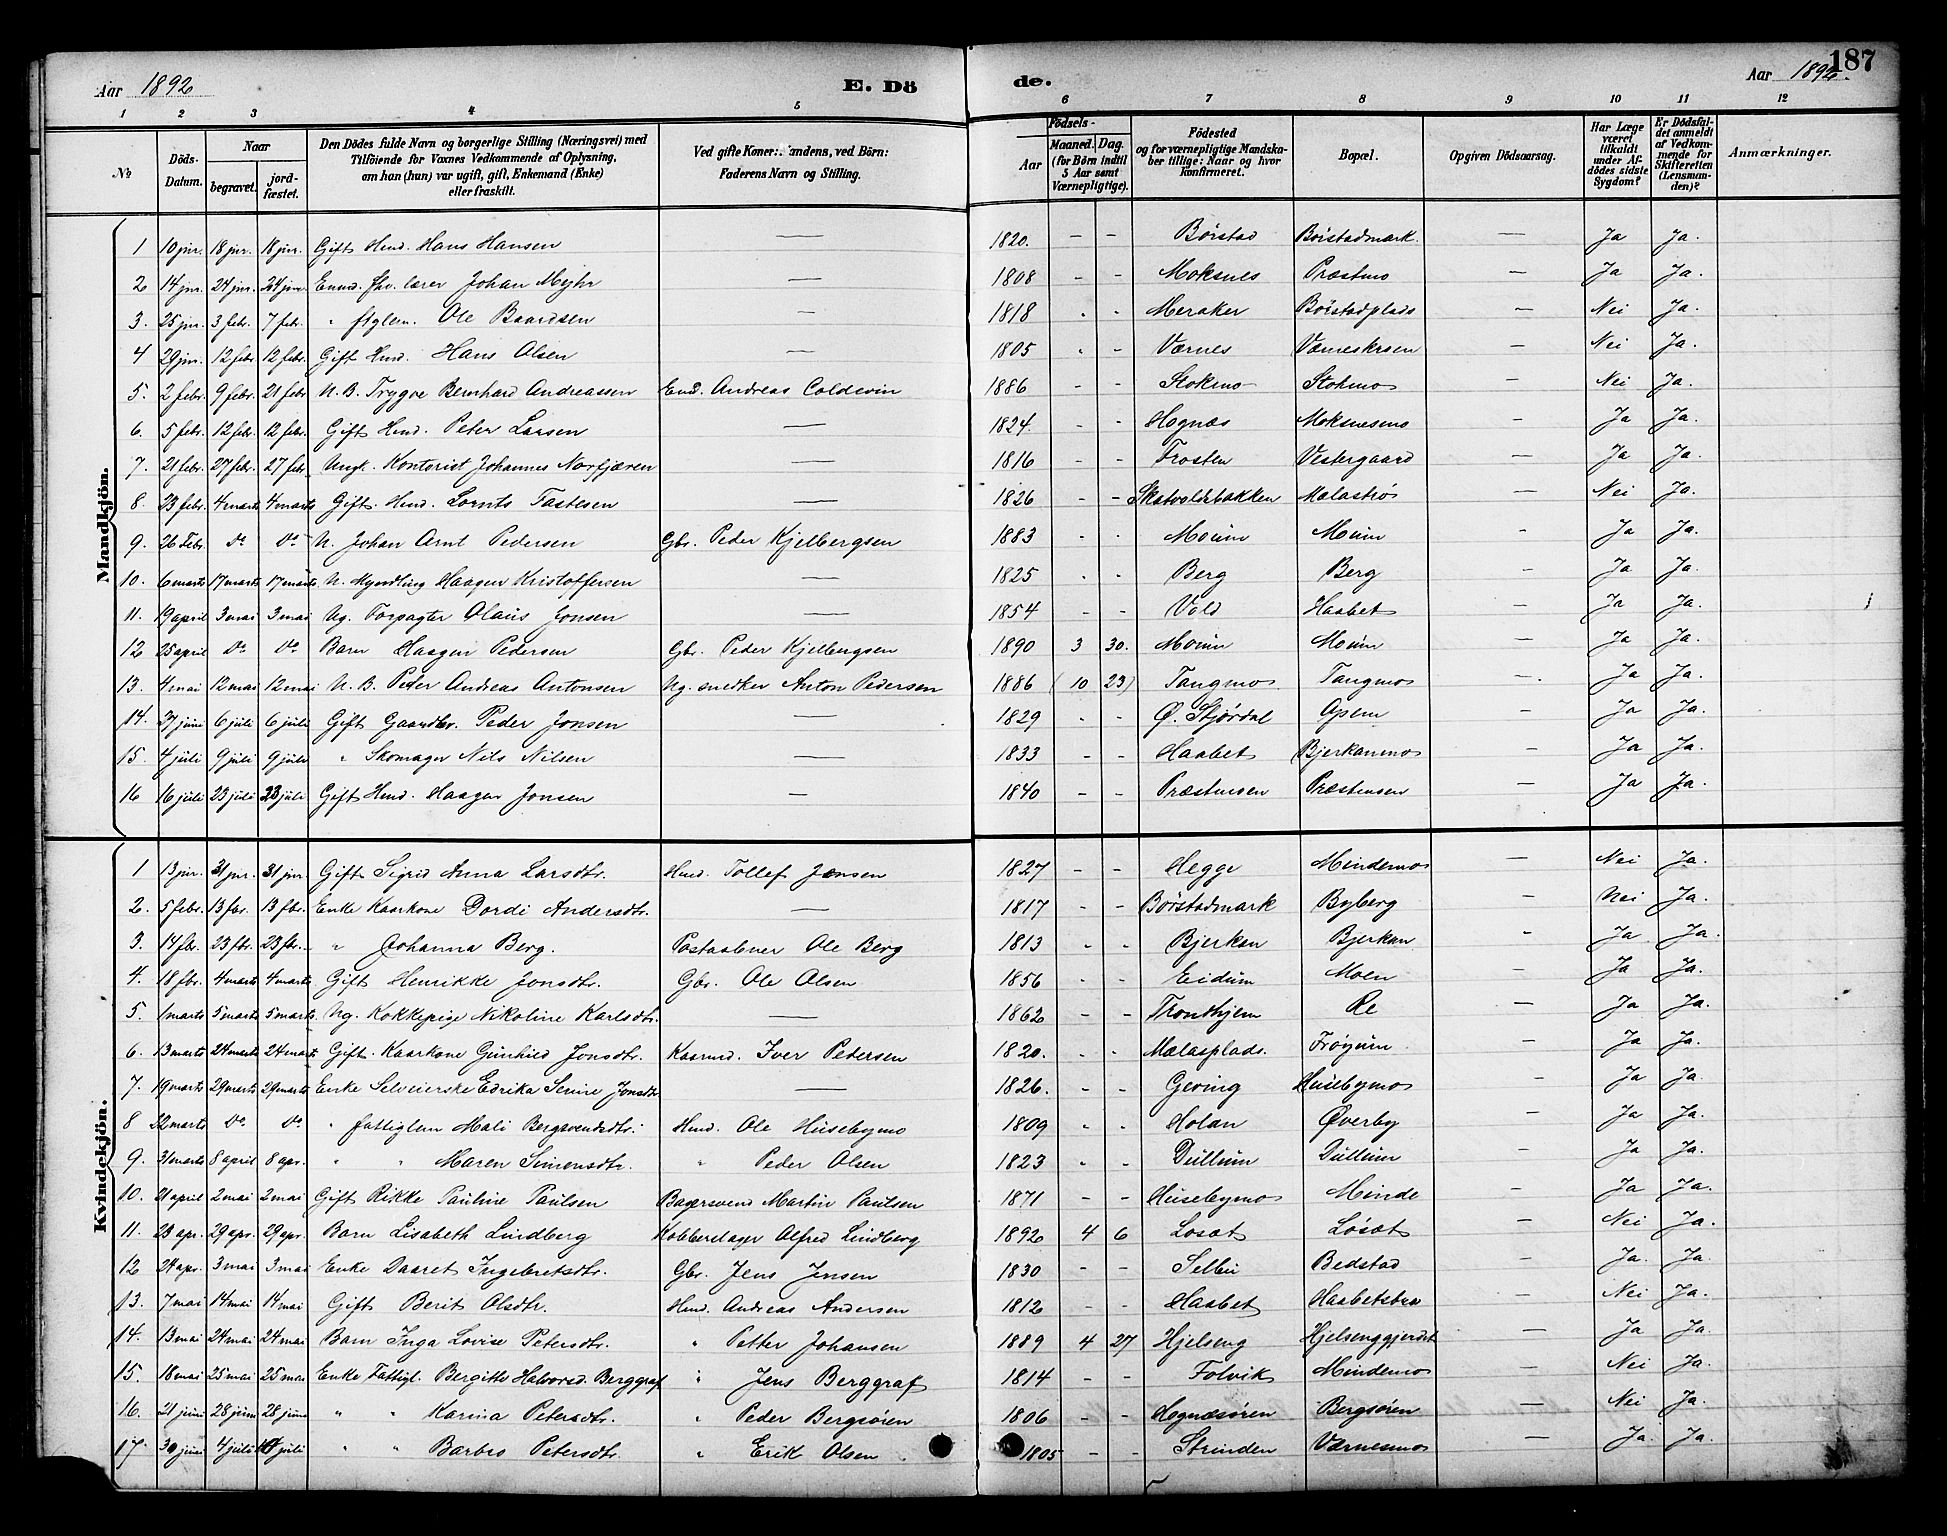 Aar 1892 E. Dö de. Aar 1892. 187
1 2 3 4 5 6 7 8 9 10 11 12
№ Döds-Datum. Naar begravet. jordfæstet. Den Dödes fulde Navn og borgerlige Stilling (Næringsvei) med Tilföiende for Voxnes Vedkommende af Oplysning, om han (hun) var ugift, gift, Enkemand (Enke) eller fraskilt. Ved gifte Koner: Mandens, ved Börn: Faderens Navn og Stilling. Födsels- Aar Maaned. Dag. (for Börn indtil 5 Aar samt Værnepligtige). Födested og for værnepligtige Mandskaber tillige: Naar og hvor konfirmeret. Bopæl. Opgiven Dödsaarsag. Har Læge været tilkaldt under Afdödes sidste Sygdom? Er Dödsfaldet anmeldt af Vedkommende for Skifteretten (Lensmanden)? Anmærkninger.
Mandkjön.
1 10 jnr. 18 jnr. 18 jnr. Gift Hmd. Hans Hansen — 1820. - - Børstad Børstadmark. — Ja Ja.
2 14 jnr. 24 jnr. 24 jnr. Enmd. Skr. lærer Johan Mejhr — 1808 - - Moksnes Præstmo — Ja Ja.
3. 25 jnr. 3 febr. 7 febr. " ftglem. Ole Baardsen — 1818 - - Meraker Børstadplads — Nei Ja.
4 29 jnr. 12 febr. 12 febr. Gift Hmd. Hans Olsen — 1805 - - Værnes Værneskrsen — Nei Ja.
5. 2 febr. 9 febr. 21 febr. U. B. Trygve Bernhard Andreassen Emd. Andreas Coldevin 1886 - - Stokmo Stokmo — Nei Ja.
6. 5 febr. 12 febr. 12 febr. Gift Hmd. Peter Larsen — 1824. - - Hognæs Moksnesmo — Ja Ja.
7. 21 febr. 27 febr. 27 febr. Ungk. Kontorist Johannes Norfjæren — 1816 - - Frosten Vestergaard — Ja Ja.
8. 23 febr. 4 marts 4 marts Gift. Hmd. Lornts Tastesen — 1826 - - Skatvoldsbakken Malastrø — Nei Ja.
9. 26 Febr. do do U. Johan Arnt Pedersen Gbr. Peder Kjelbergsen 1883 - - Moum Moum - Ja Ja.
10. 6 marts 17 marts 17 marts. U. Myndling Haagen Kristoffersen — 1825 - - Berg Berg — Ja Ja.
11. 19 april 3 mai 3 mai Ug. Forpagter Olaus Jonsen — 1854 - - Vold Haabet — Ja Ja.
12 25 april do do Barn Haagen Pedersen Gbr. Peder Kjelbergsen 1890 3 30. Moum Moum — Ja Ja.
13. 4 mai 12 mai 12 mai U. B. Peder Andreas Antonsen Ug. snedker Anton Pedersen 1886 (10 23) Tangmo. Tangmo — Ja Ja.
14. 27 juni 6 juli 6 juli Gift Gaardbr. Peder Jonsen — 1829 - - Ø. Stjørdal Apem — Ja Ja.
15. 4 juli 9 juli 9 juli " Skomager Nils Nilsen — 1833 - - Haabet Bjerkanmo — Ja Ja.
16 16 juli 23 juli 23 juli Gift Hmd. Haagen Jonsen — 1840 - - Præstmoen Præstmoen — Ja Ja.
Kvindekjön.
1 13 jnr. 31 jnr. 31 jnr. Gift Sigrid Anna Larsdtr. Hmd. Tollef Jensen 1827 - - Hegge Mindemo — Nei Ja.
2. 5 febr. 13 fbr. 13 fbr. Enke Kaarkone Dordi Andersdtr. — 1817 - - Børstadmark Byberg — Nei Ja.
3. 14 fbr. 23 fbr. 23 fbr. " Johanna Berg. Postaabner Ole Berg 1813 - - Bjerkan Bjerkan - Ja. Ja.
4. 18 fbr. 4 marts 4 marts Gift Henrikke Jonsdtr. Gbr. Ole Olsen 1856 - - Eidum Moen — Ja Ja.
5. 1 marts 5 marts 5 marts. Ug. Kokkepige Nikoline Karlsdtr. — 1862 - - Trondhjem Re — Ja Ja.
6. 13 marts 24 marts 24 marts. Gift. Kaarkone Gunhild Jonsdtr. Kaarmd. Iver Pedersen 1820. - - Mælasplads. Frøyum. — Ja Ja.
7. 19 marts 29 marts 29 marts Enke Selveierske Edrika Senne Jonsdtr. — 1826. - - Geving Husebymo — Ja Ja.
8 22 marts do do " fattiglem Mali Bergsvendsdtr. Hmd. Ole Husebymo 1809 - - Holan Øverby — Ja Ja.
9. 31 marts 8 april 8 apr. " " Maren Simensdtr. " Peder Olsen 1823 - - Dullum Dullum — Ja Ja.
10. 21 april 2 mai 2 mai Gift Rikke Pauline Paulsen Bagersvend Martin Paulsen 1871 - - Husebymo Minde — Ja Ja.
11. 23 apr. 29 apr. 29 apr. Barn Lisabeth Lindberg Kobberslager Alfred Lindberg 1892 4 6 Losæt Løsæt — Nei Ja.
12 24 apr. 3 mai 3 mai Enke Daaret Ingebretsdtr. Gbr. Jens Jensen 1830 - - Selbu Bedstad — Ja. Ja.
13. 7 mai 14 mai 14 mai Gift Berit Olsdtr. Hmd. Andreas Andersen 1812 - - Haabet Haabetsbra — Nei Ja.
14. 13 mai 24 mai 24 mai Barn Inga Lovise Petersdtr. " Petter Johansen 1889 4 27 Hjelseng Hjelsenggjerdet — Ja Ja.
15. 18 mai 25 mai 25 mai Enke Fattigl. Bergitte Halvorsd. Berggraf " Jens Berggraf 1814 - - Folvik Mindemo — Nei Ja.
16. 21 juni 28 juni 28 juni " " Karina Petersdtr. " Peder Bergsøren 1806 - - Hognæsøren Bergsøren — Nei Ja.
17. 30 juni 4 juli 10 juli " " Barbro Petersdtr. " Erik Olsen 1805 - - Strinden Værnesmo — Ja. Ja.